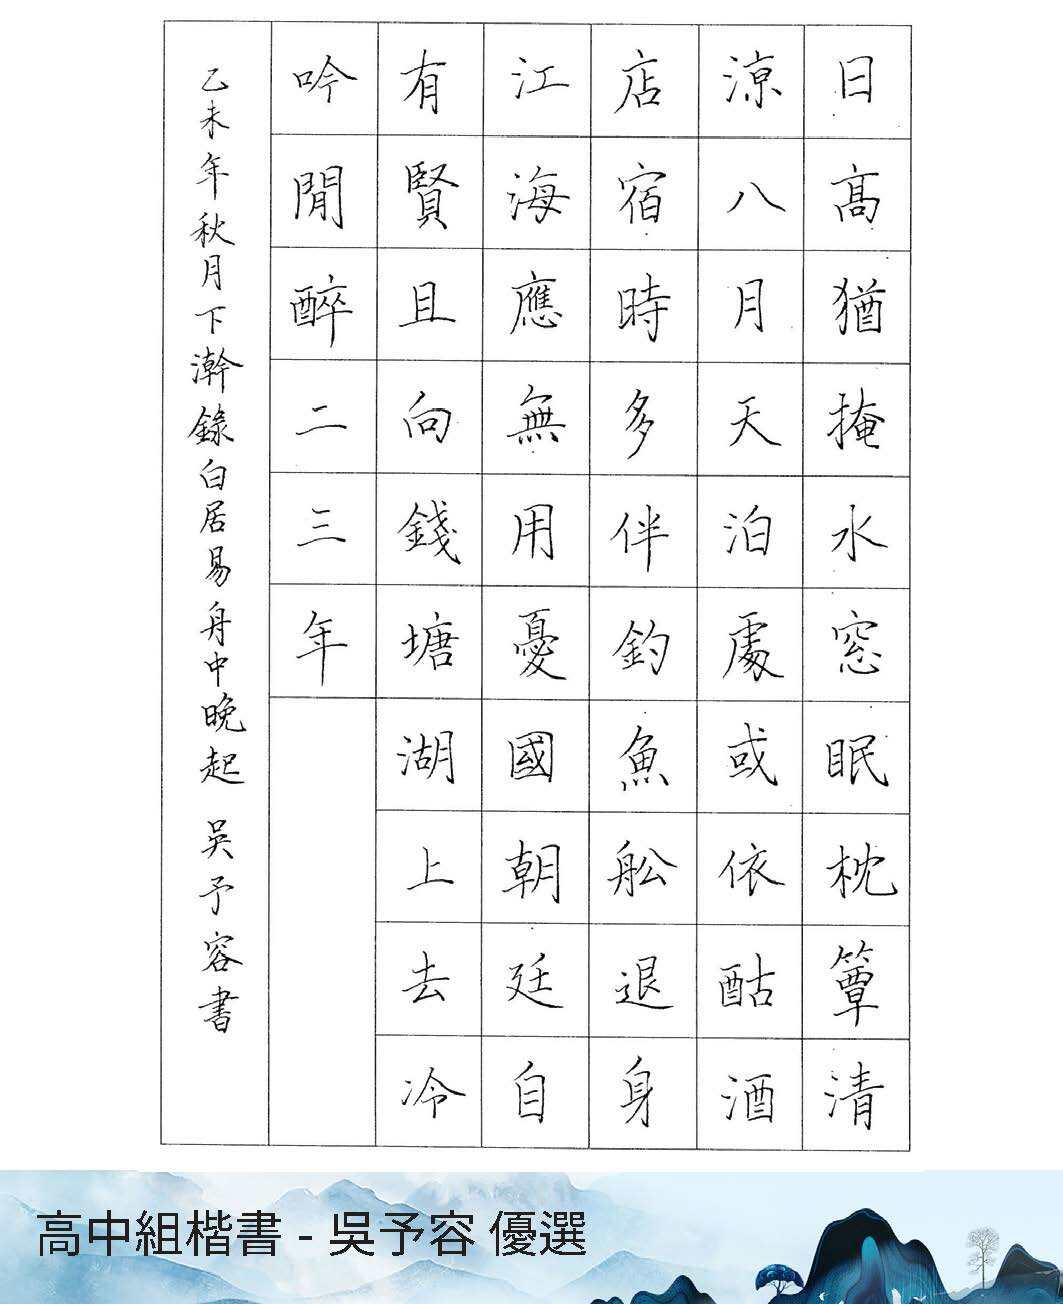 日高猶掩水窓眠枕簟清
涼八月天泊處或依酤酒
店宿時多伴釣魚舩退身
江海應無用憂國朝廷自
有賢且向錢塘湖上去冷
吟閒醉二三年
乙未年秋月下澣錄白居易舟中晚起 吳予容書
高中組楷書 - 吳予容 優選